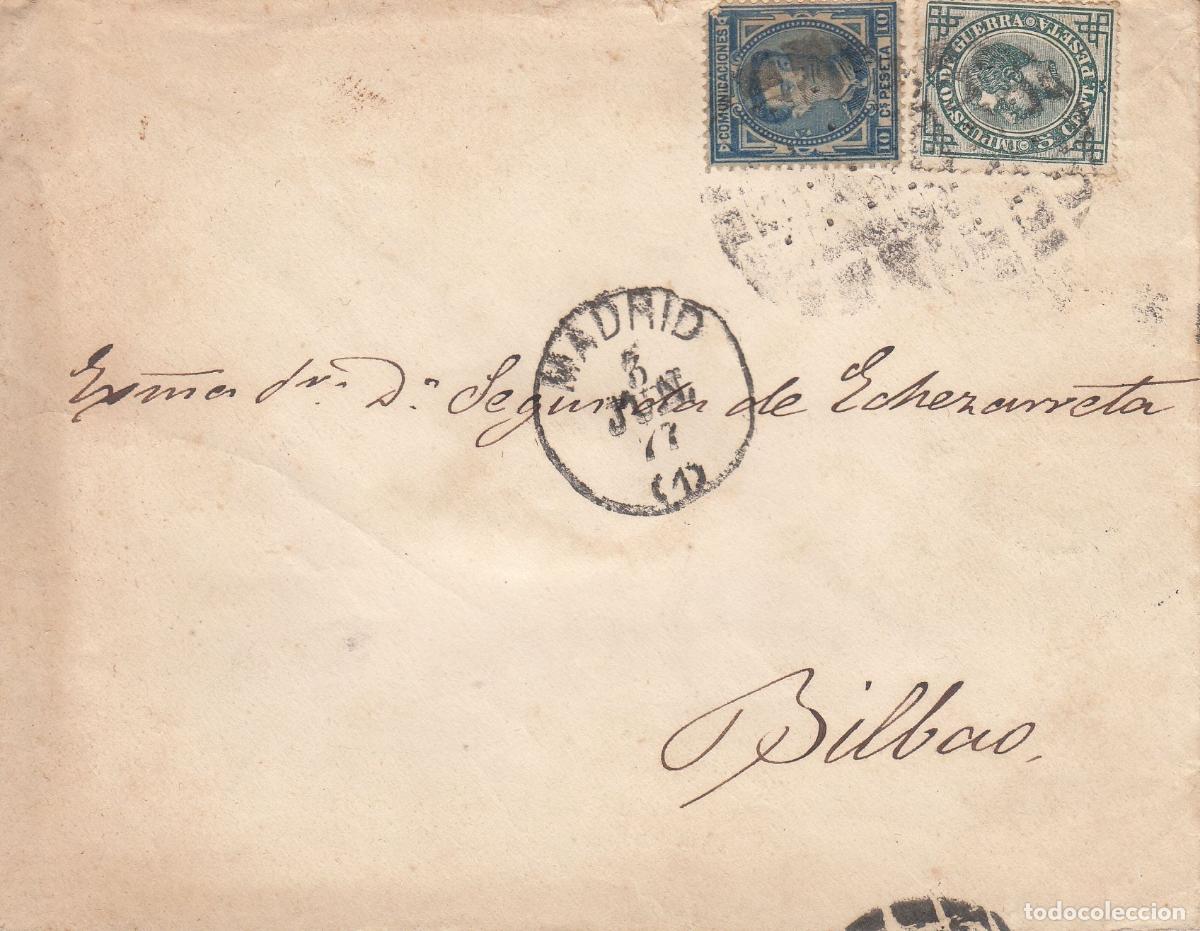 COMUNICACIONES
10 Cs PESETA 10
IMPUESTO DE GUERRA
5 CENT. PESETA
MADRID
3
JUN
77
(1)
Exma Sra. Da. Segunda de Echezarreta
Bilbao,
todocoleccion